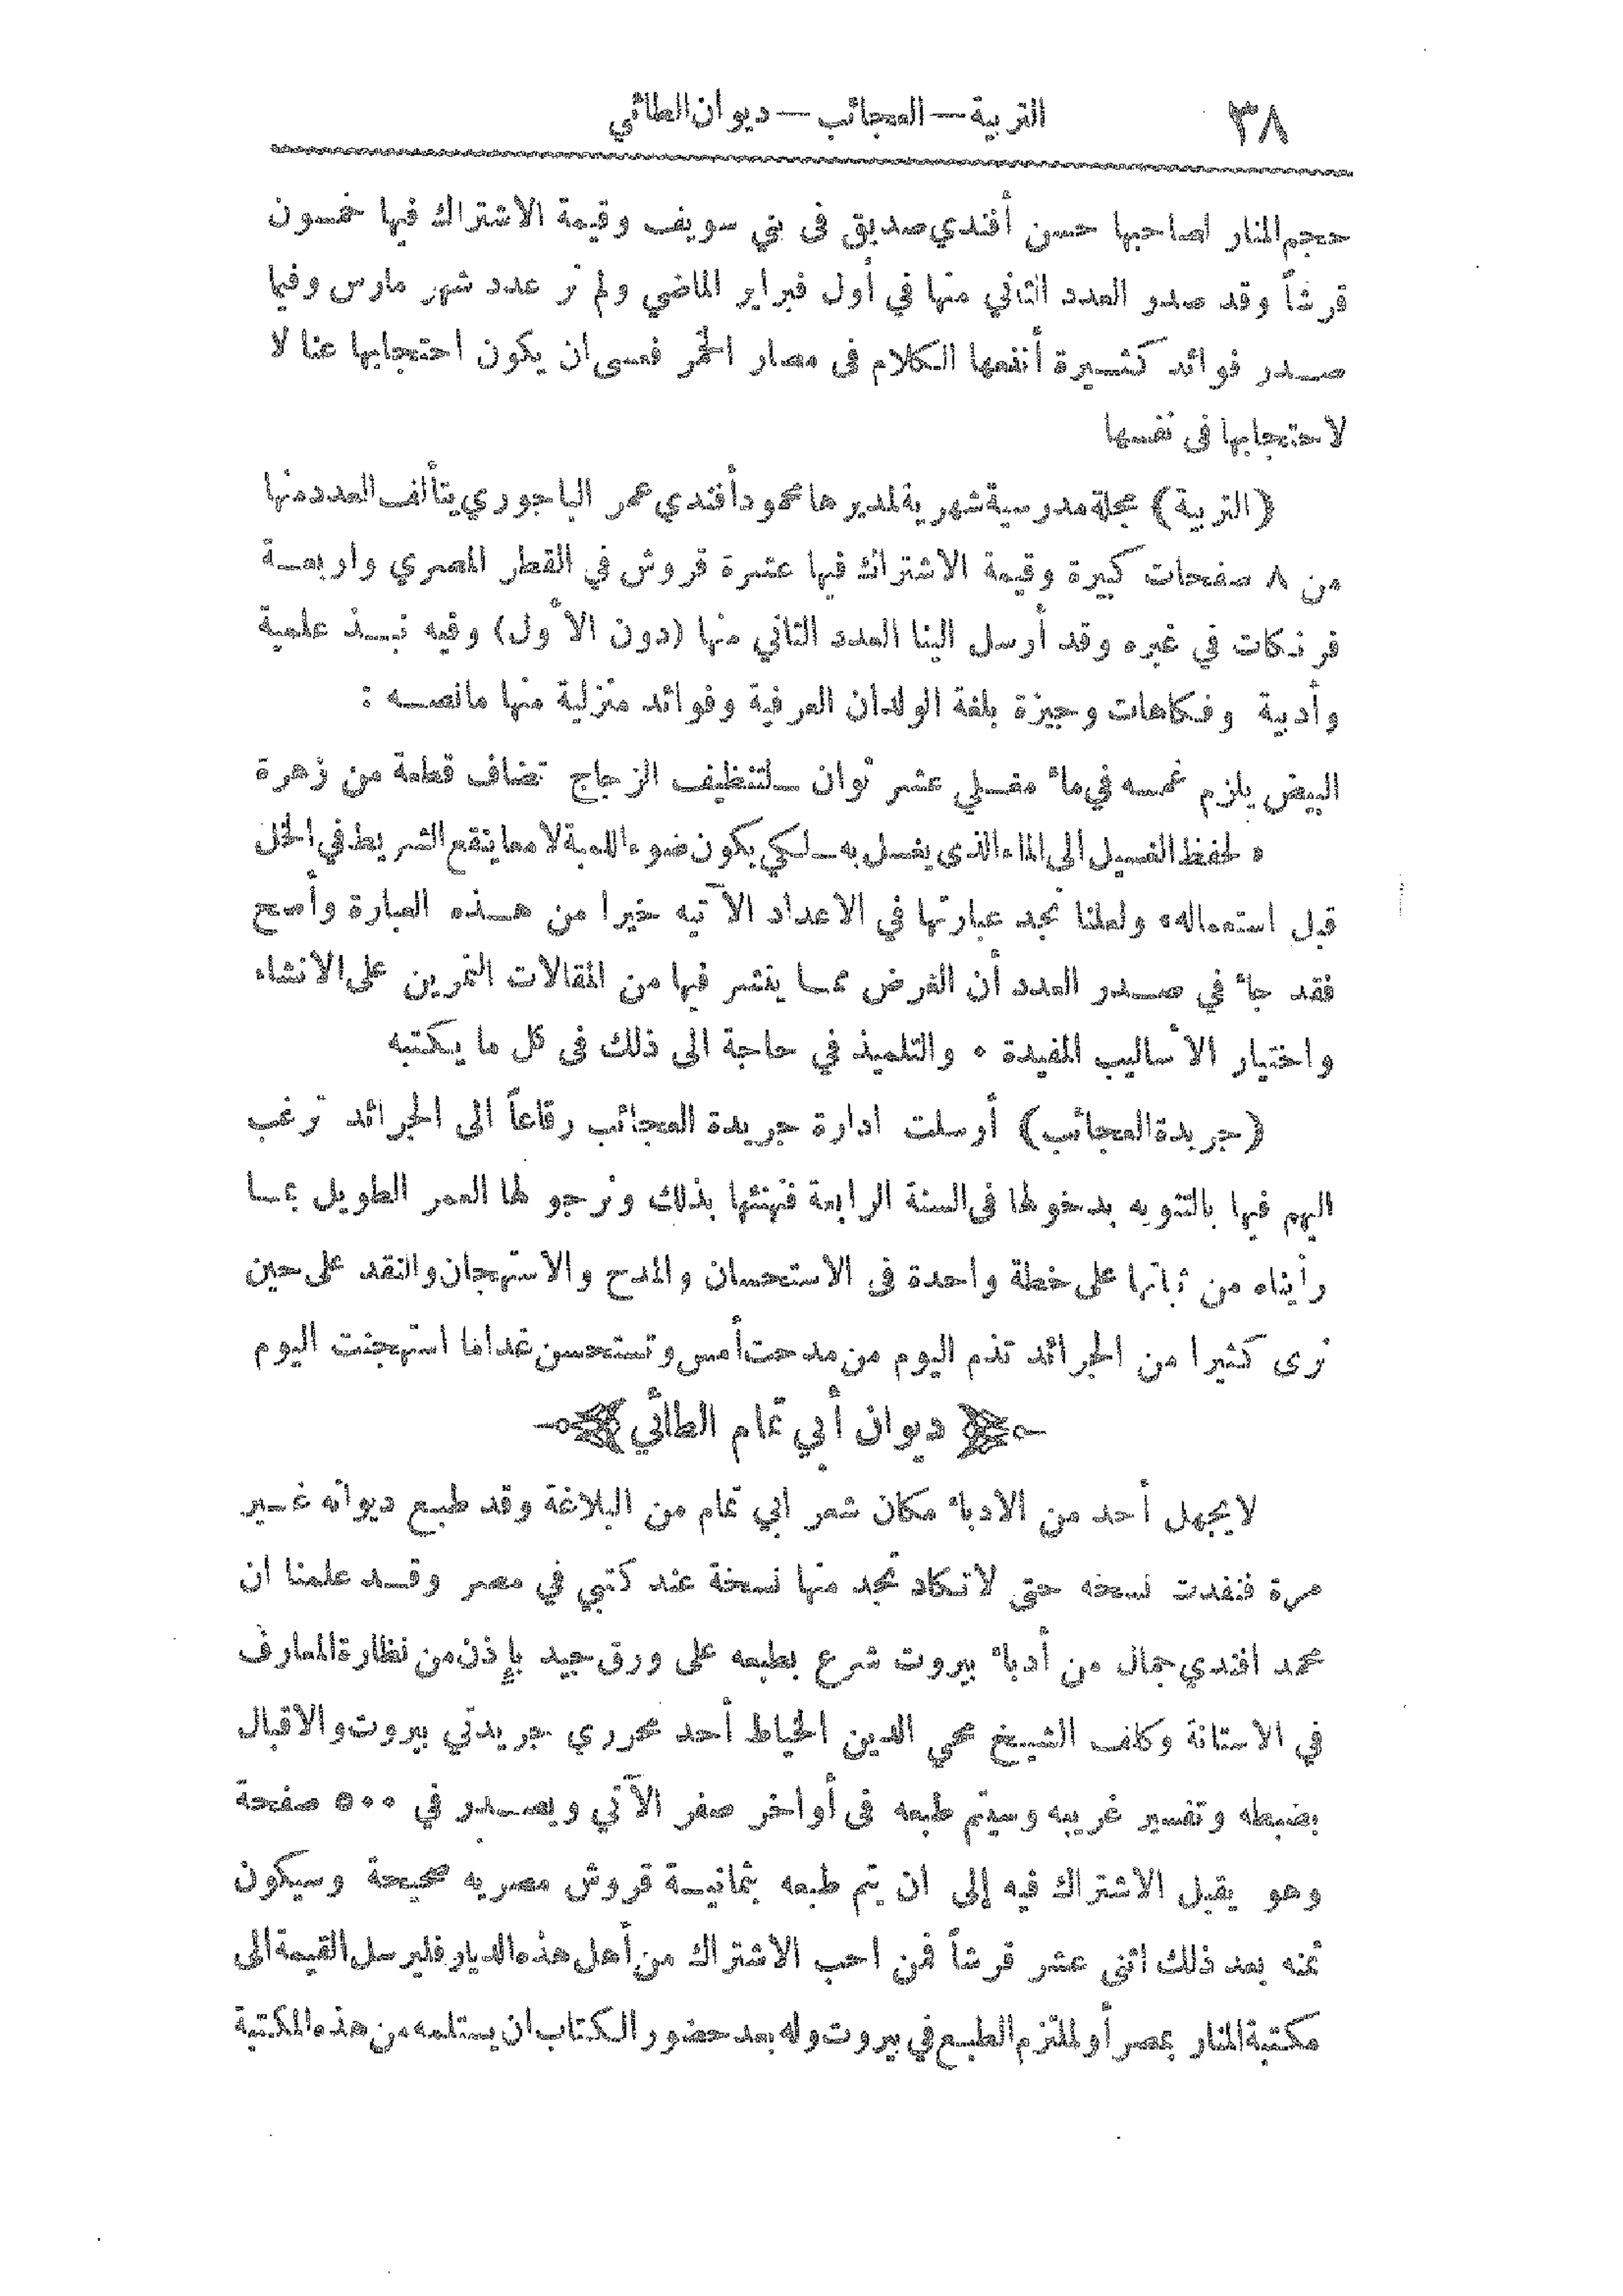 ٣٨ التربية — العجائب — ديوان الطائي
حجم المنار لصاحبها حسن أفندي صديق فى بني سويف وقيمة الاشتراك فيها خمسون
قرشاً وقد صدو العدد الثاني منها في أول فبراير الماضي ولم نر عدد شهر مارس وفيما
صدر فوائد كثيرة أنفعها الكلام فى مضار الخمر فعسى ان يكون احتجابها عنا لا
لاحتجابها فى نفسها
(التربية) مجلة مدرسية شهرية لمديرها محمود أفندي عمر الباجوري يتألف العدد منها
من ٨ صفحات كبيرة وقيمة الاشتراك فيها عشرة قروش في القطر المصري واربعة
فرنكات في غيره وقد أرسل الينا العدد الثاني منها (دون الأول) وفيه نبذ علمية
وأدبية وفكاهات وجيزة بلغة الولدان العرفية وفوائد منزلية منها مانصه :
البيض يلزم غمسه في ماء مغلي عشر ثوان — لتنظيف الزجاج تضاف قطعة من زهرة
ه لحفظ الغسيل الى الماء الذى يغسل به — لكي يكون ضوء اللمبة لامعا ينقع الشريط في الخل
قبل استعماله» ولعلنا نجد عبارتها في الاعداد الآتيه خيرا من هذه العبارة وأصح
فقد جاء في صدر العدد أن الغرض مما ينشر فيها من المقالات التمرين على الانشاء
واختيار الأساليب المفيدة ٠ والتلميذ في حاجة الى ذلك فى كل ما يكتبه
(جريدة العجائب) أرسلت ادارة جريدة العجائب رقاعاً الى الجرائد ترغب
اليهم فيها بالتنويه بدخولها فى السنة الرابعة فنهنئها بذلك ونرجو لها العمر الطويل بما
رأيناه من ثباتها على خطة واحدة فى الاستحسان والمدح والاستهجان والنقد على حين
نرى كثيرا من الجرائد تذم اليوم من مدحت أمس وتستحسن غدا ما استهجنت اليوم
ديوان أبي تمام الطائي
لا يجهل أحد من الادباء مكان شعر ابي تمام من البلاغة وقد طبع ديوانه غير
مرة فنفدت نسخه حتى لاتكاد تجد منها نسخة عند كتبي في مصر وقد علمنا ان
محمد افندي جمال من أدباء بيروت شرع بطبعه على ورق جيد بإذن من نظارة المعارف
في الاستانة وكلف الشيخ محي الدين الخياط أحد محرري جريدتي بيروت والاقبال
بضبطه وتفسير غريبه وسيتم طبعه فى أواخر صفر الآتي ويصدر في ٥٠٠ صفحة
وهو يقبل الاشتراك فيه إلى ان يتم طبعه بثمانية قروش مصريه صحيحة وسيكون
ثمنه بعد ذلك اثنى عشر قرشاً فمن احب الاشتراك من أهل هذه الديار فليرسل القيمة الى
مكتبة المنار بمصر أو لملتزم الطبع في بيروت وله بعد حضور الكتاب ان يستلمه من هذه المكتبة